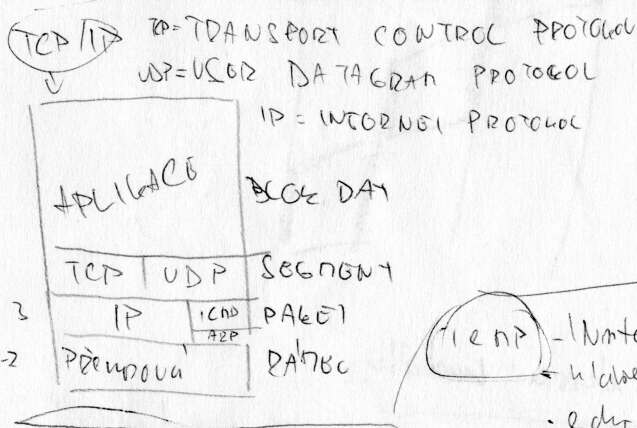 TCP/IP TCP = TRANSPORT CONTROL PROTOKOL
UDP = USER DATAGRAM PROTOKOL
IP = INTERNET PROTOKOL
APLIKACE BLOK DAT
TCP UDP SEGMENT
3 IP ICMP PAKET
ARP
-2 RÁMEC
ICMP